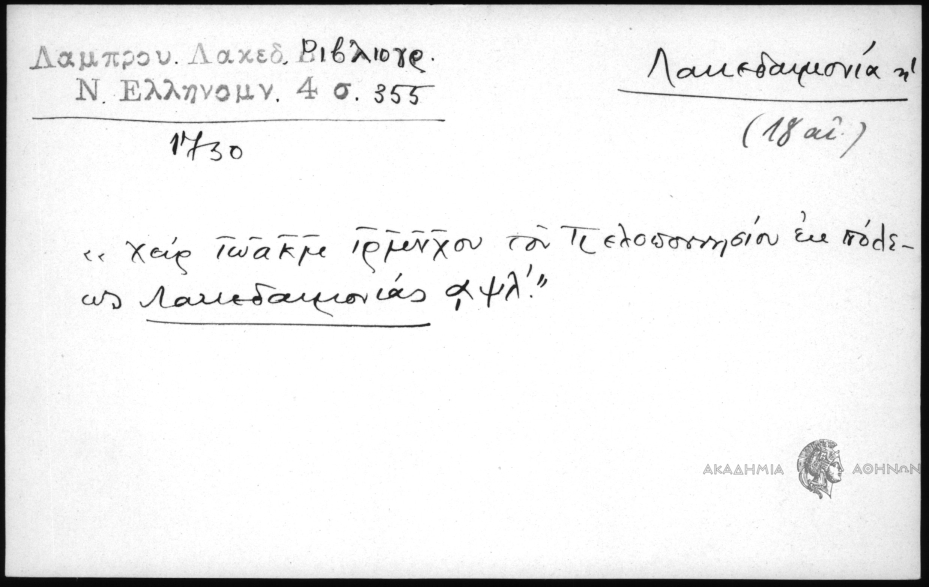 Λαμπρου. Λακεδ. Βιβλιογρ.
Ν. Ελληνομν. 4 σ. 355
1730
Λακεδαιμονία ἡ
(18 αἰ.)
«χεὶρ ἰωακμ ἱρμνχου τοῦ Πελοποννησίου ἐκ πόλε-
ως Λακεδαιμονίας ͵αψλʹ.»
ΑΚΑΔΗΜΙΑ ΑΘΗΝΩΝ